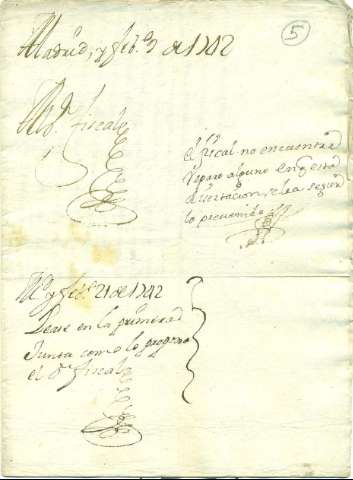 5
Madrid, y feb.º 3 de 1742
Al Sr. fiscal
el fiscal no encuentra
reparo alguno en esta
disertacion, y lea segun
lo prevenido
Md. y feb.º 21 de 1742
Lease en la primera
Junta como lo propone
el Sr. fiscal